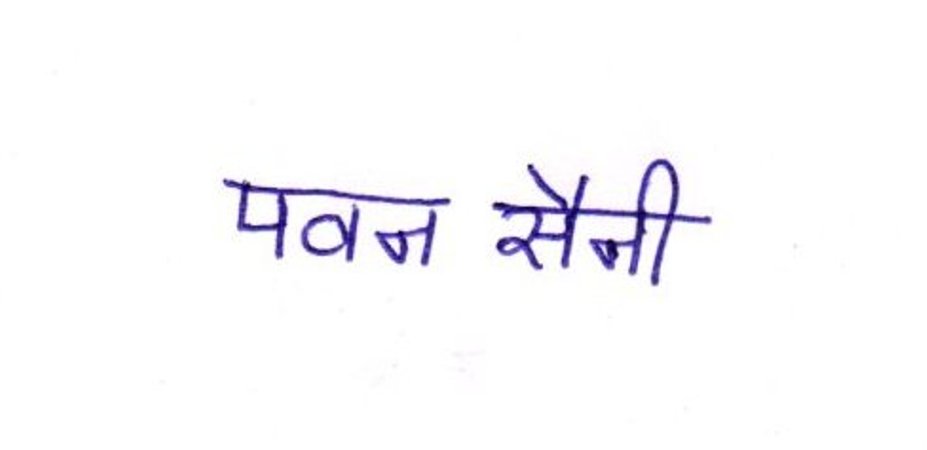 पवन सैनी